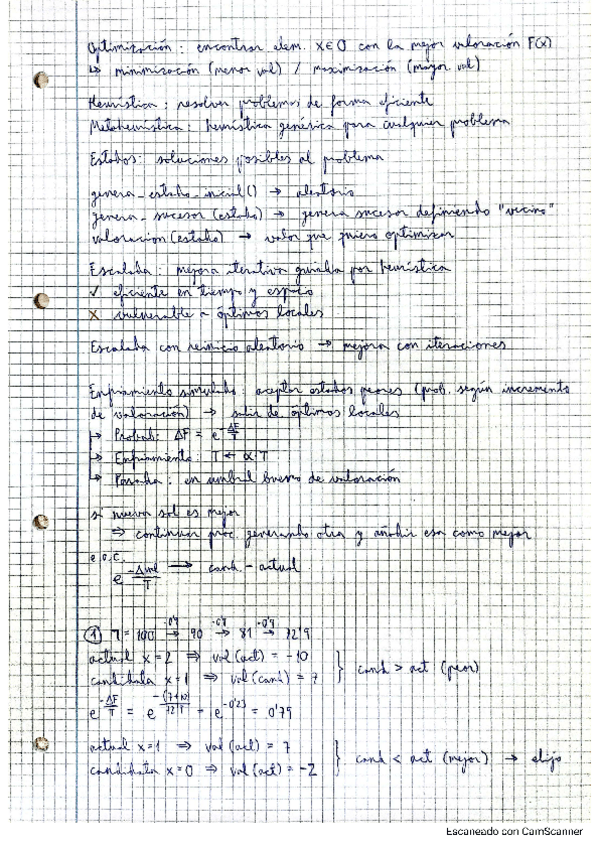 Optimización: encontrar elem. x∈O con la mejor valoración F(x)
↳ minimización (menor val) / maximización (mayor val)
Heurística: resolver problemas de forma eficiente
Metaheurística: heurística genérica para cualquier problema
Estados: soluciones posibles al problema
genera_estado_inicial() → aleatorio
genera_sucesor (estado) → genera sucesor definiendo "vecino"
valoracion (estado) → valor que quiero optimizar
Escalada: mejora iterativa guiada por heurística
✓ eficiente en tiempo y espacio
X vulnerable a óptimos locales
Escalada con reinicio aleatorio → mejora con iteraciones
Enfriamiento simulado aceptar estados peores (prob. según incremento
de valoración) → salir de óptimos locales
↳ Probab: ΔF = e^-ΔF/T
↳ Enfriamiento: T ← α·T
↳ Parada: en umbral bueno de valoración
si nueva sol es mejor
⇒ continuar proc. generando otra y añadir esa como mejor
e.o.c.
e^-Δval/T → cand. - actual
① T = 100 →·0'9 90 →·0'9 81 →·0'9 72'9
actual x=2 ⇒ val (act) = -10
candidata x=1 ⇒ val (cand) = 7 } cand > act (peor)
e^-ΔF/T = e^-(7+10)/72'9 = e^-0'23 = 0'79
actual x=1 ⇒ val (act) = 7
candidata x=0 ⇒ val (act) = -2 } cand < act (mejor) → elijo
Escaneado con CamScanner